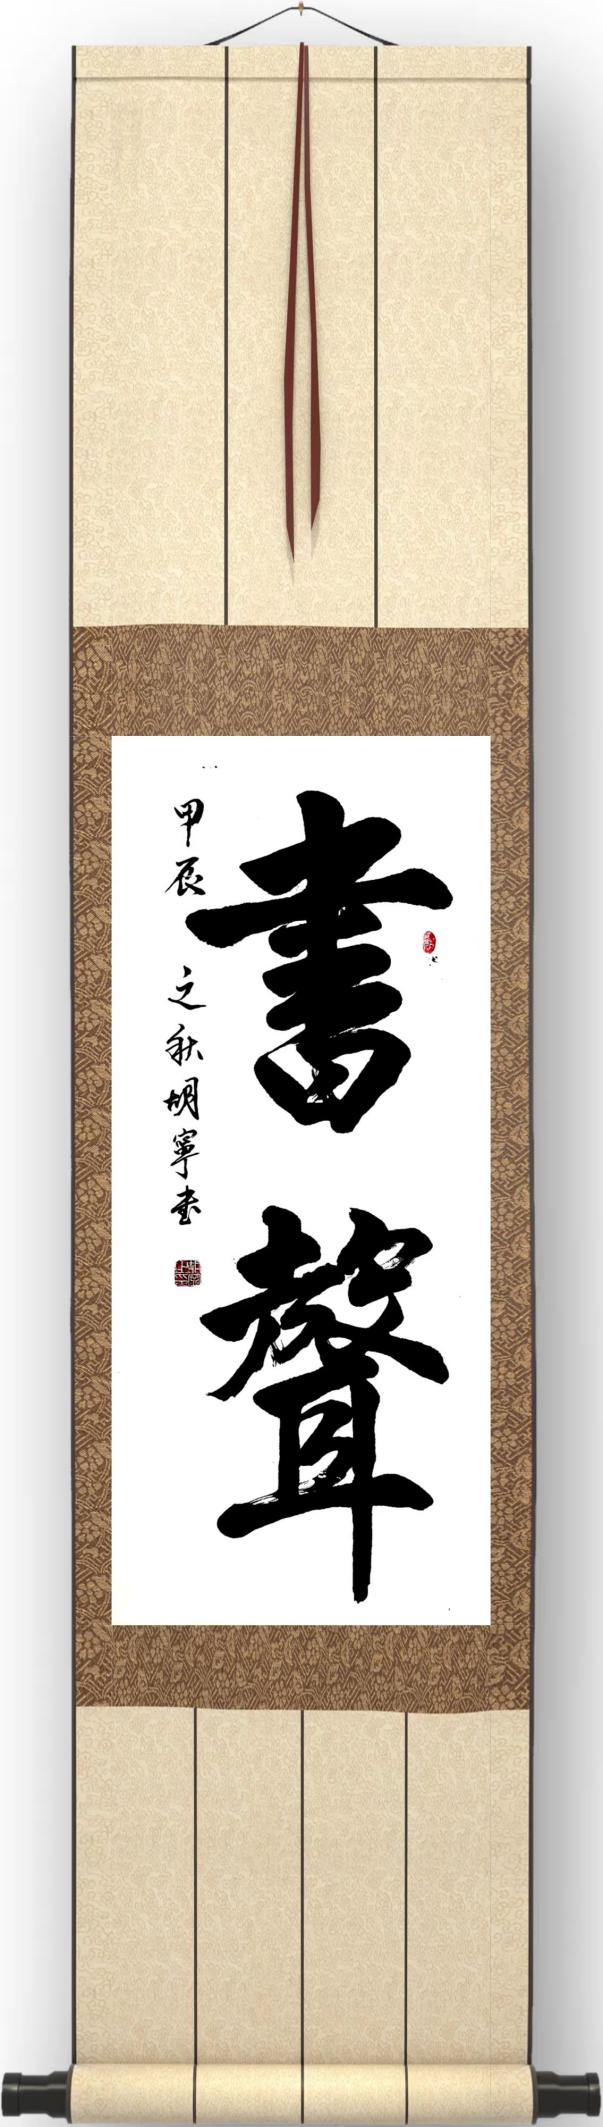 書聲
甲辰之秋胡寧書